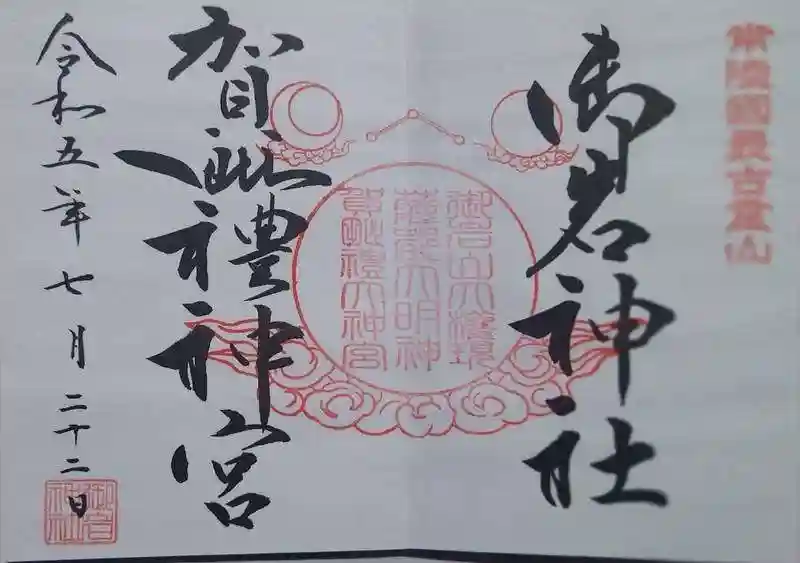 常陸國最古霊山
御岩神社
御岩山大權現
薩都大明神
賀毗禮大神宮
賀毗禮神宮
令和五年七月二十二日
御岩神社